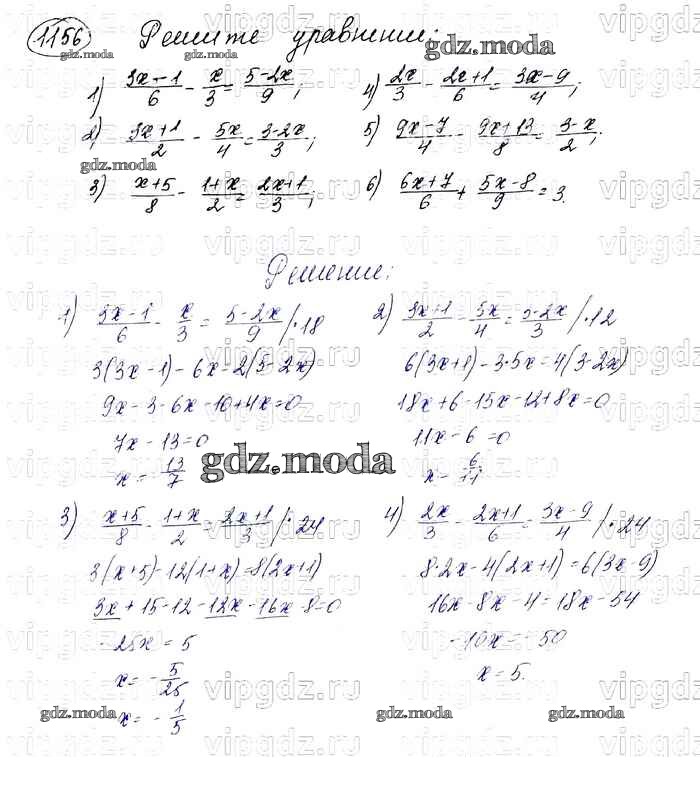 1156 Решите уравнении:
1) (3x-1)/6 - x/3 = (5-2x)/9;
2) (3x+1)/2 - 5x/4 = (3-2x)/3;
3) (x+5)/8 - (1+x)/2 = (2x+1)/3;
4) 2x/3 - (2x+1)/6 = (3x-9)/4;
5) (9x-7)/4 - (9x+13)/8 = (3-x)/2;
6) (6x+7)/6 + (5x-8)/9 = 3.
Решение:
1) (3x-1)/6 - x/3 = (5-2x)/9 /·18
3(3x-1)-6x=2(5-2x)
9x-3-6x-10+4x=0
7x-13=0
x=13/7
2) (3x+1)/2 - 5x/4 = (3-2x)/3 /·12
6(3x+1)-3·5x=4(3-2x)
18x+6-15x-12+8x=0
11x-6=0
x=6/11
3) (x+5)/8 - (1+x)/2 = (2x+1)/3 /·24
3(x+5)-12(1+x)=8(2x+1)
3x+15-12-12x-16x-8=0
-25x=5
x=-5/25
x=-1/5
4) 2x/3 - (2x+1)/6 = (3x-9)/4 /·24
8·2x-4(2x+1)=6(3x-9)
16x-8x-4=18x-54
-10x=-50
x=5.
gdz.moda
vipgdz.ru